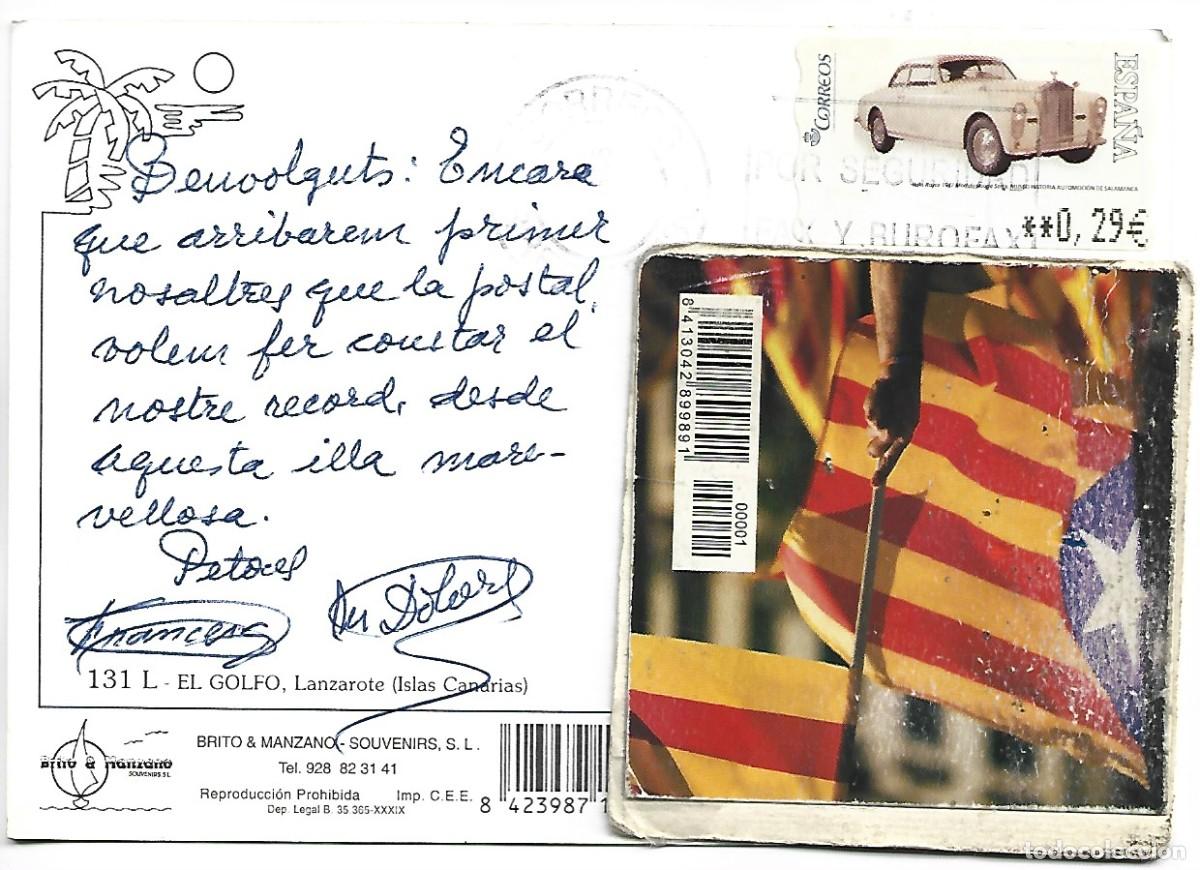 Benvolguts: Encara
que arribarem primer
nosaltres que la postal,
volem fer constar el
nostre record, desde
aquesta illa mara-
vellosa.
Petons
Francesc
131 L - EL GOLFO, Lanzarote (Islas Canarias)
Brito & Manzano
SOUVENIRS S.L.
BRITO & MANZANO - SOUVENIRS, S. L.
Tel. 928 82 31 41
Reproducción Prohibida Imp. C.E.E.
Dep. Legal B. 35 365-XXXIX
8 423987 1
CORREOS
ESPAÑA
MUSEO HISTORIA AUTOMOCIÓN DE SALAMANCA
**0,29€
POR SEGURIDAD
FAX Y BUROFAX
8413042899891
00001
todocoleccion